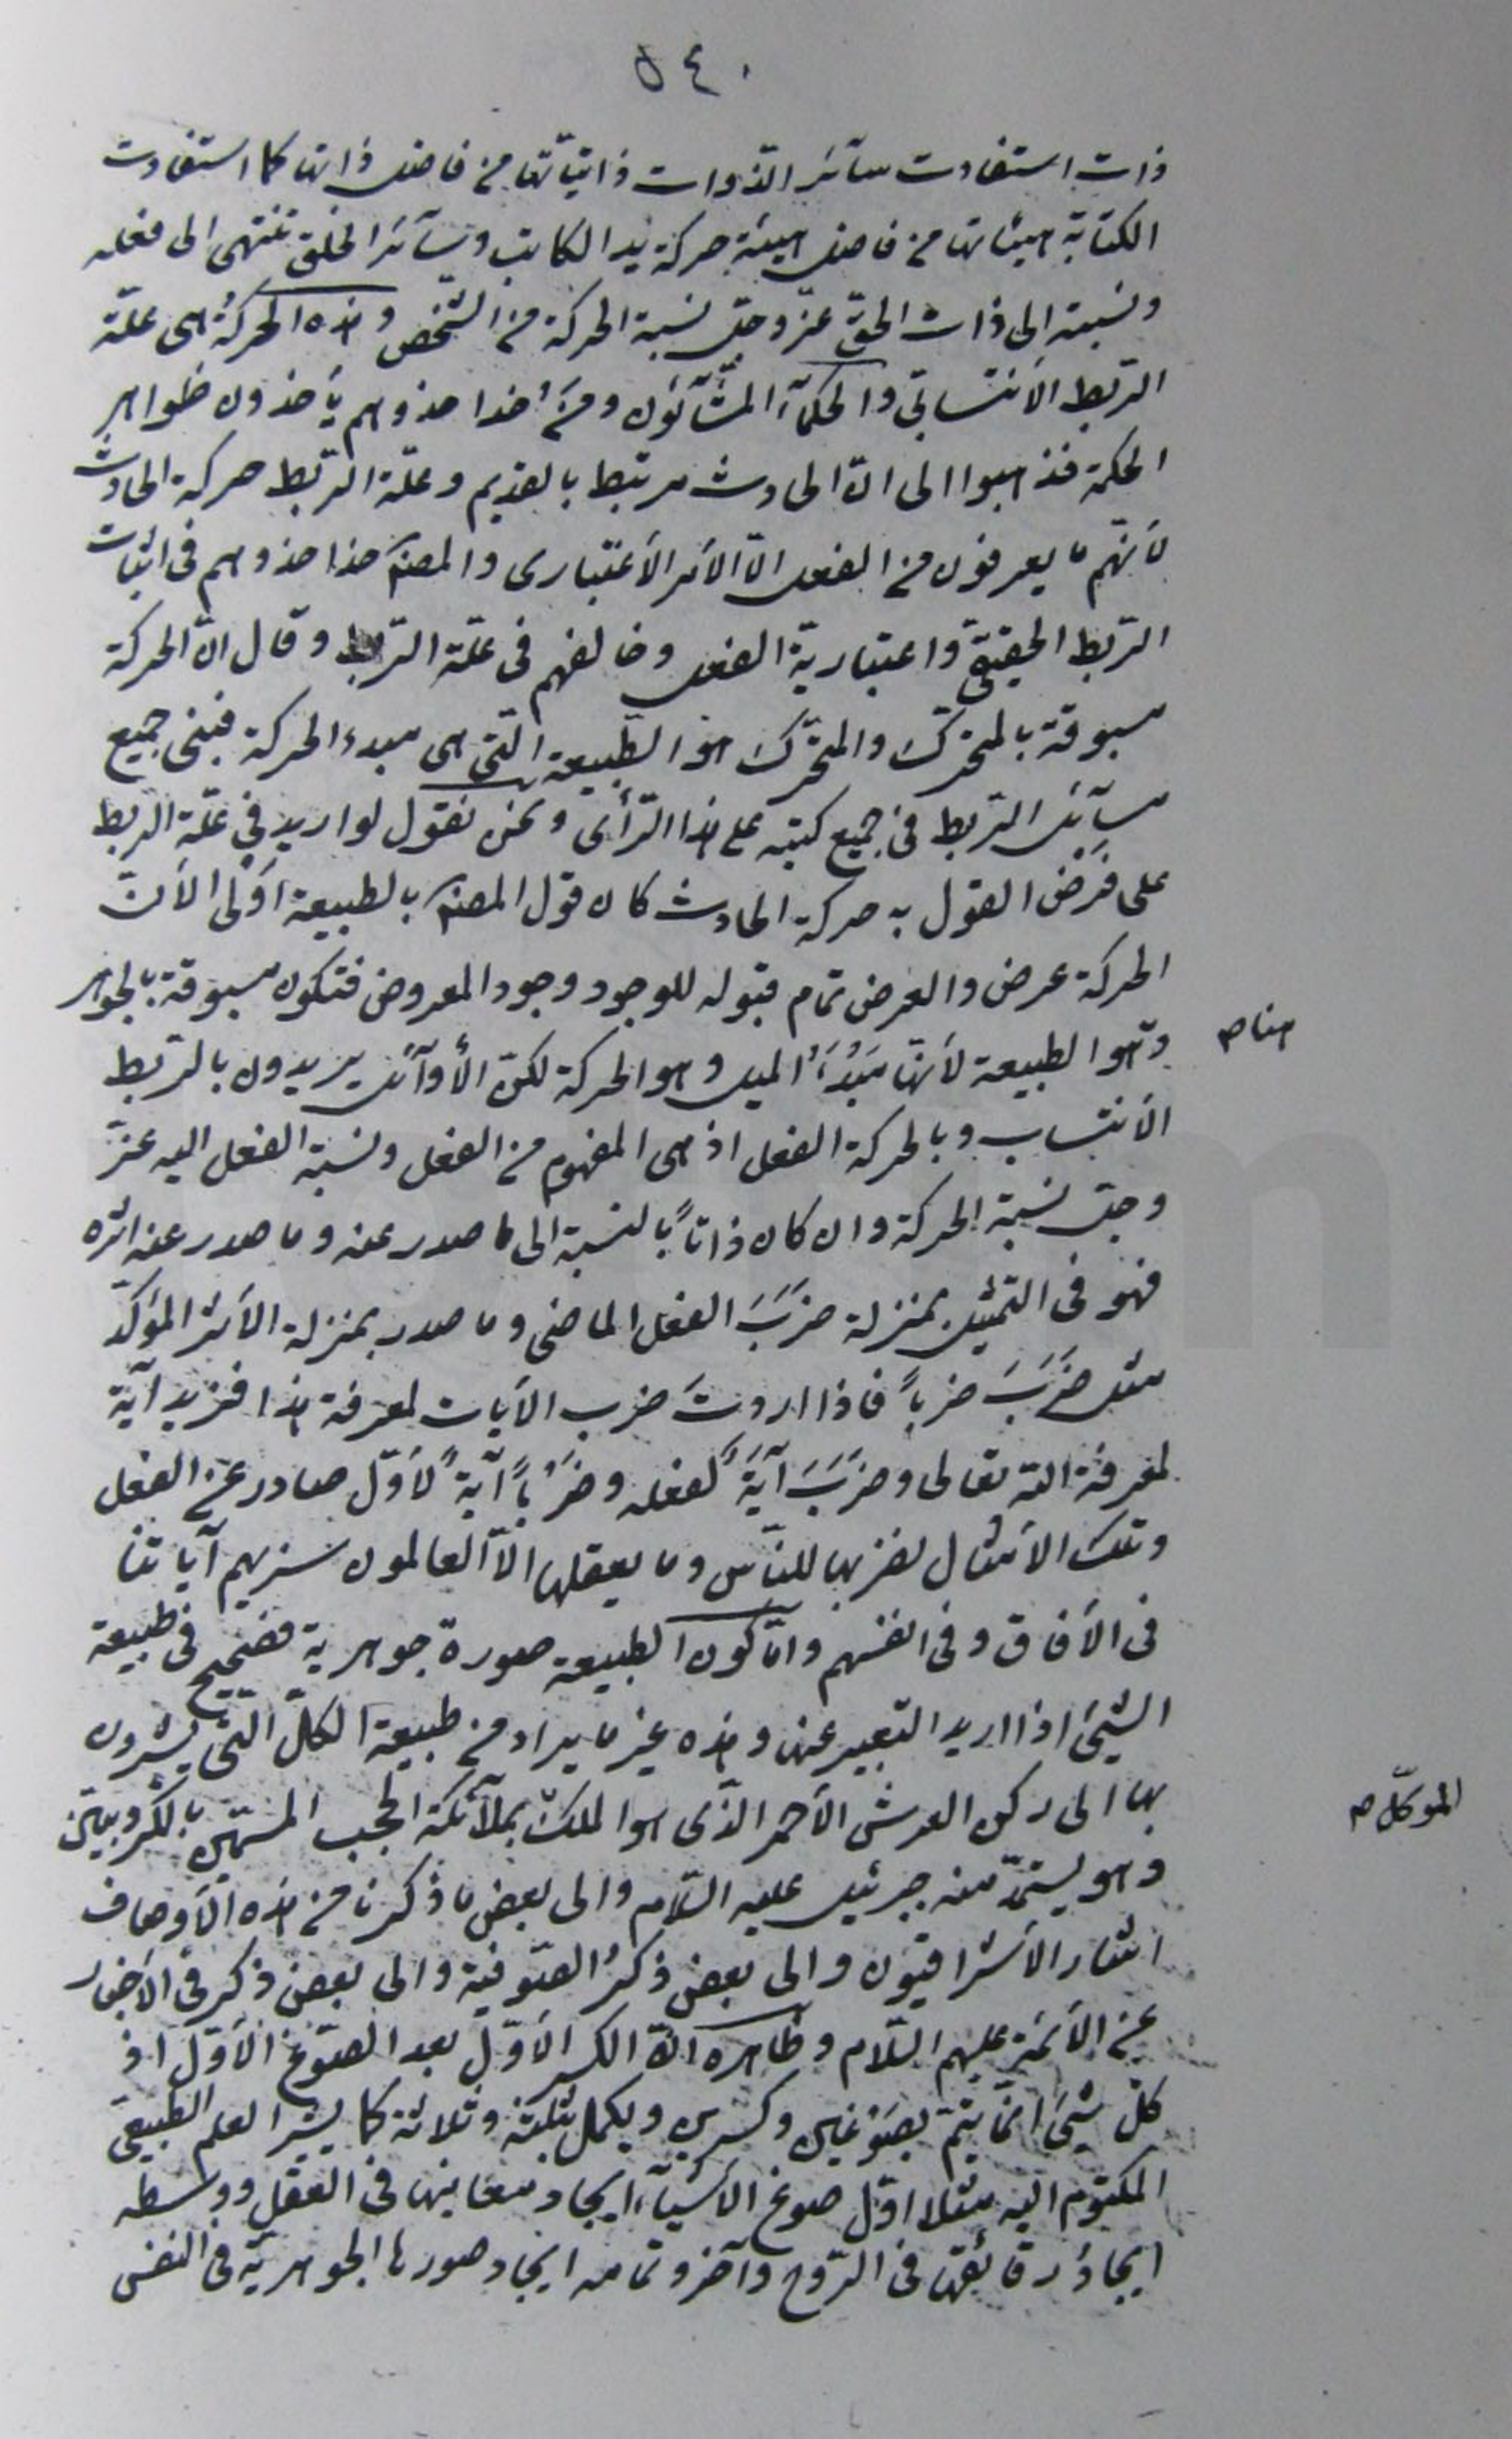 ٥٤٠
ذات استفادت سآئر الذّوات ذاتيّاتها من فاضل ذاتها كما استفادت
الكتابة هيئاتها من فاضل هيئة حركة يد الكاتب وسآئر الخلق تنتهى الى فعله
ونسبته الى ذات الحقّ عزّ وجلّ نسبة الحركة من الشّخص وهذه الحركةُ هى علّة
الرّبط الأنتسابّى والحكمآء المشّآئون ومن أخذا حذوهم يأخذون ظواهر
الحكمة فذهبوا الى انّ الحادث مرتبط بالقديم وعلّة الرّبط حركة الحادث
لأنّهم ما يعرفون من الفعل الّا الأمر الأعتبارى والمصنّف حذا حذوهم فى اثبات
الرّبط الحقيقىّ واعتباريّة الفعل وخالفهم فى علّة الرّبط وقال انّ الحركة
مسبوقة بالمتحرّك والمتحرّك هو الطّبيعة الّتى هى مبدء الحركة فبنى جميع
مسآئل الرّبط فى جميع كتبه على هذا الرّأى ونحن نقول لو اريد فى علّة الربط
على فَرْض القول به حركة الحادث كان قول المصنّف بالطبيعة اَوْلى الأنّ
الحركة عرض والعرض تمام قبوله للوجود وجود المعروض فتكون مسبوقة بالجوهر
وهو الطبيعة لأنّها مَبْدَءُ الميل وهو الحركة لكنّ الأوآئل يريدون بالرّبط
هنا ص
الأنتساب وبالحركة الفعل اذ هى المفهوم من الفعل ونسبة الفعل اليه عزّ
وجلّ نسبة الحركة وان كان ذاتاً بالنسبة الى ما صدر عنه وما صدر عنه اثره
فهو فى التّمثيل بمنزلة ضَرَبَ الفعل الماضى وما صدر بمنزلة الأثر المؤكّد
مثل ضَرَبَ ضرباً فاذا اردتَ ضرب الأيات لمعرفة هذا فزيد آية
لمعرفة الله تعالى وضَرَبَ آيَةً لفعله وضَرْباً آيَةً لأوّل صادر عن الفعل
وتلك الأمثال نضربها للنّاس وما يعقلها الّا العالمون سنريهم آياتنا
فى الأفاق وفى انفسهم وامّا كون الطبيعة صورة جوهرية فصحيح فى طبيعة
الشّىء اذا اريد التعبير عنها وهذه غير ما يراد من طبيعة الكلّ الّتى يشيرون
بها الى ركن العرش الأحمر الّذى هو الملك بملآئكة الحجب المسمّين بالكرّوبيّين
الموكّل ص
وهو يستمدّ منه جبرئيل عليه السّلام والى بعض ما ذكرنا من هذه الأوصاف
اشار الأشراقيّون والى بعض ذكرُ الصّوفية والى بعض ذكر فى الأخبار
عن الأئمّة عليهم السّلام وظاهره انّ الكسر الأوّل بعد الصّوغ الأوّل اذ
كلّ شىء انّما يتمّ بصَوْغين وكسرين ويكمل بثلثة وثلاثة كما يشير العلم الطّبيعىّ
المكتوم اليه مثلا اوّل صوغ الأشيآء ايجاد معانيها فى العقل ووسطه
ايجادُ رقائقها فى الرّوح وآخره تمامه ايجاد صورها الجوهريّة فى النفس